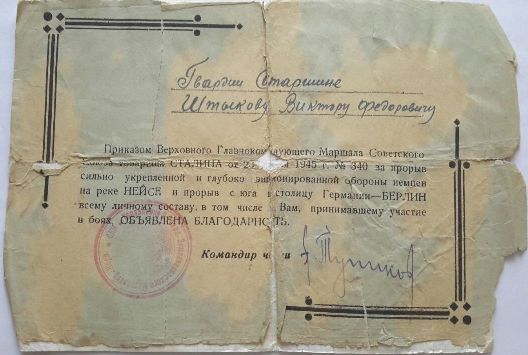 Гвардии Старшине
Штыкову Виктору Федоровичу
Приказом Верховного Главнокомандующего Маршала Советского
Союза товарища СТАЛИНА от 1945 г. № 340 за прорыв
сильно укрепленной и глубоко эшелонированной обороны немцев
на реке НЕЙСЕ и прорыв с юга в столицу Германии—БЕРЛИН
всему личному составу, в том числе и Вам, принимавшему участие
в боях, ОБЪЯВЛЕНА БЛАГОДАРНОСТЬ.
Командир части